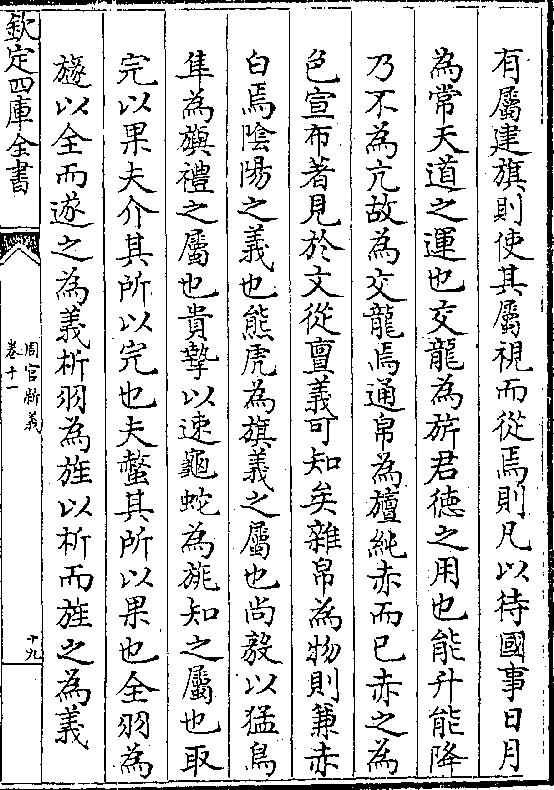 有屬建旗則使其屬視而從焉則凡以待國事日月
為常天道之運也交龍為旂君徳之用也能升能降
乃不為亢故為交龍焉通帛為旜純赤而已赤之為
色宣布著見於文從亶義可知矣雜帛為物則兼赤
白焉陰陽之義也熊虎為旗義之屬也尚毅以猛鳥
隼為旟禮之屬也貴摯以速龜蛇為旐知之屬也取
完以果夫介其所以完也夫螫其所以果也全羽為
旞以全而遂之為義析羽為旌以析而旌之為義
欽定四庫全書
周官新義
卷十一
十九